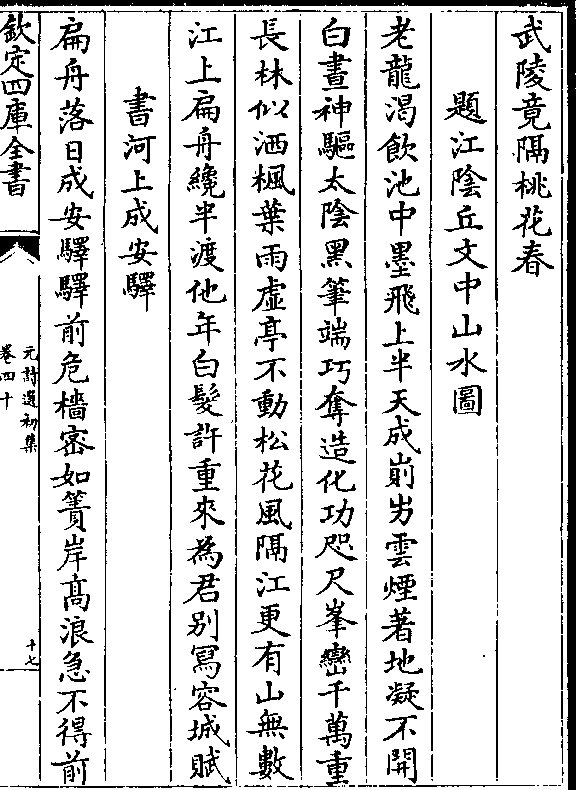 武陵竟隔桃花春
題江陰丘文中山水圖
老龍渴飲池中墨飛上半天成崱屴雲煙著地凝不開
白晝神驅太陰黑筆端巧奪造化功咫尺峯巒千萬重
長林似洒楓葉雨虛亭不動松花風隔江更有山無數
江上扁舟纔半渡他年白髮許重來為君别寫容城賦
書河上成安驛
扁舟落日成安驛驛前危檣宻如簀岸髙浪急不得前
欽定四庫全書
元詩選初集
卷四十
十七